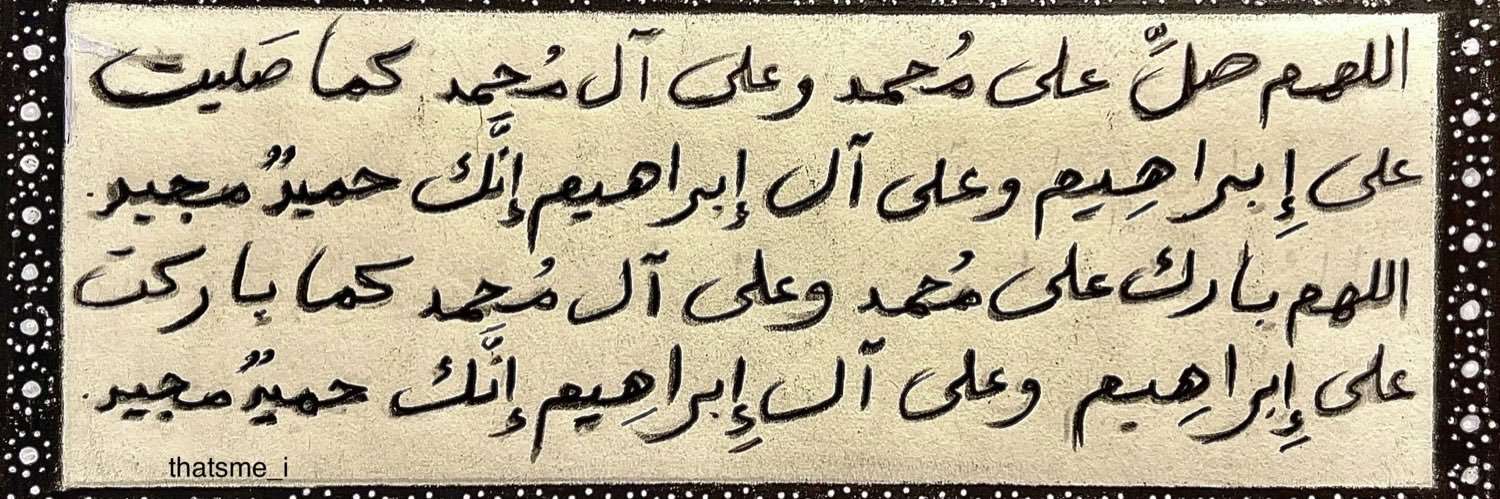 اللهم صلِّ على مُحمد وعلى آل مُحمِد كما صَليت
على إِبراهِيم وعلى آل إبراهيم إنَّك حميدٌ مجيد.
اللهم بارك على مُحمد وعلى آل مُحمِد كما باركت
على إِبراهِيم وعلى آل إِبراهِيم إنَّك حميدٌ مجيد.
thatsme_i